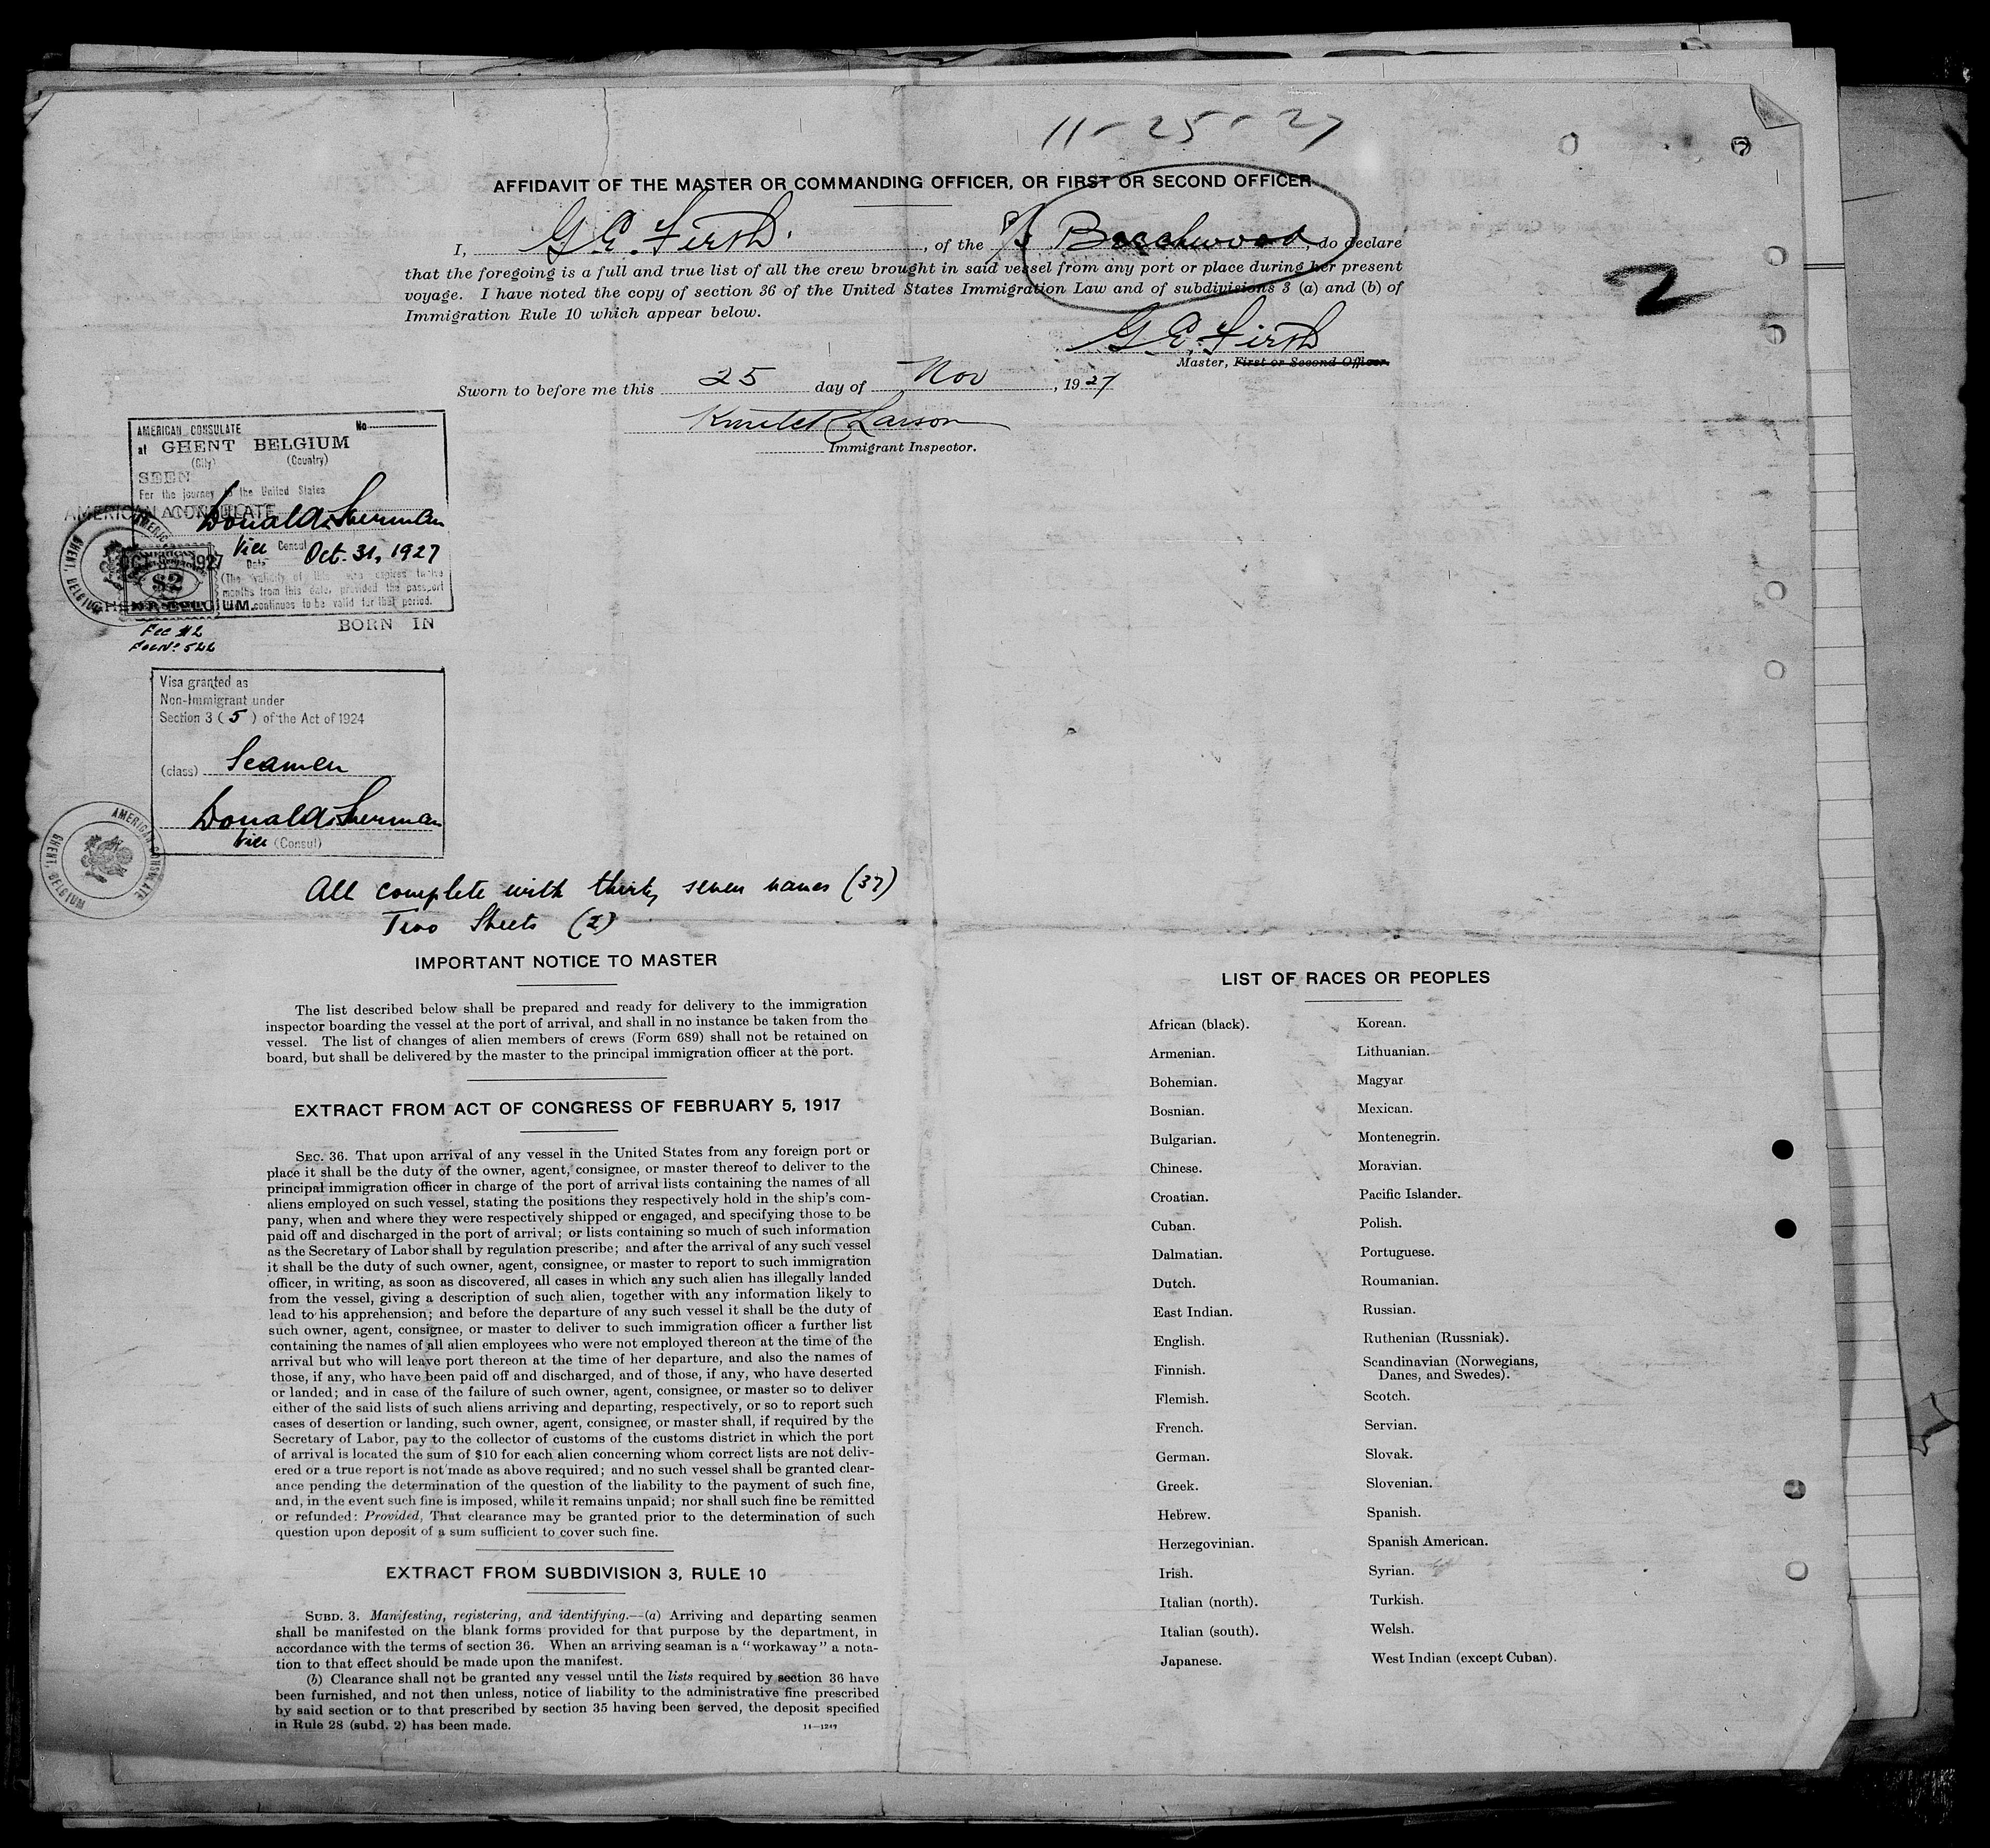 11-25-27
AFFIDAVIT OF THE MASTER OR COMMANDING OFFICER, OR FIRST OR SECOND OFFICER
I, G.E. Firth, of the S/S Beechwood, do declare
that the foregoing is a full and true list of all the crew brought in said vessel from any port or place during her present
voyage. I have noted the copy of section 36 of the United States Immigration Law and of subdivisions 3 (a) and (b) of
Immigration Rule 10 which appear below.
2
G.E. Firth
Master, First or Second Officer.
Sworn to before me this 25 day of Nov, 1927
Larson
Immigrant Inspector.
AMERICAN CONSULATE No
at GHENT BELGIUM
(City) (Country)
SEEN
For the journey to the United States
AMERICAN CONSULATE
Donald Sherman
Vice Consul Oct. 31, 1927
Date
(The validity of this visa expires twelve
months from this date, provided the passport
continues to be valid for that period.
$2
GHENT, BELGIUM.
BORN IN
Fee $2
Fee No. 522
Visa granted as
Non-Immigrant under
Section 3 (5) of the Act of 1924
(class) Seamen
Donald Sherman
Vice (Consul)
AMERICAN CONSULATE
GHENT, BELGIUM
All complete with thirty seven names (37)
Two Sheets (2)
IMPORTANT NOTICE TO MASTER
The list described below shall be prepared and ready for delivery to the immigration
inspector boarding the vessel at the port of arrival, and shall in no instance be taken from the
vessel. The list of changes of alien members of crews (Form 689) shall not be retained on
board, but shall be delivered by the master to the principal immigration officer at the port.
EXTRACT FROM ACT OF CONGRESS OF FEBRUARY 5, 1917
SEC. 36. That upon arrival of any vessel in the United States from any foreign port or
place it shall be the duty of the owner, agent, consignee, or master thereof to deliver to the
principal immigration officer in charge of the port of arrival lists containing the names of all
aliens employed on such vessel, stating the positions they respectively hold in the ship's com-
pany, when and where they were respectively shipped or engaged, and specifying those to be
paid off and discharged in the port of arrival; or lists containing so much of such information
as the Secretary of Labor shall by regulation prescribe; and after the arrival of any such vessel
it shall be the duty of such owner, agent, consignee, or master to report to such immigration
officer, in writing, as soon as discovered, all cases in which any such alien has illegally landed
from the vessel, giving a description of such alien, together with any information likely to
lead to his apprehension; and before the departure of any such vessel it shall be the duty of
such owner, agent, consignee, or master to deliver to such immigration officer a further list
containing the names of all alien employees who were not employed thereon at the time of the
arrival but who will leave port thereon at the time of her departure, and also the names of
those, if any, who have been paid off and discharged, and of those, if any, who have deserted
or landed; and in case of the failure of such owner, agent, consignee, or master so to deliver
either of the said lists of such aliens arriving and departing, respectively, or so to report such
cases of desertion or landing, such owner, agent, consignee, or master shall, if required by the
Secretary of Labor, pay to the collector of customs of the customs district in which the port
of arrival is located the sum of $10 for each alien concerning whom correct lists are not deliv-
ered or a true report is not made as above required; and no such vessel shall be granted clear-
ance pending the determination of the question of the liability to the payment of such fine,
and, in the event such fine is imposed, while it remains unpaid; nor shall such fine be remitted
or refunded: Provided, That clearance may be granted prior to the determination of such
question upon deposit of a sum sufficient to cover such fine.
EXTRACT FROM SUBDIVISION 3, RULE 10
SUBD. 3. Manifesting, registering, and identifying.—(a) Arriving and departing seamen
shall be manifested on the blank forms provided for that purpose by the department, in
accordance with the terms of section 36. When an arriving seaman is a "workaway" a nota-
tion to that effect should be made upon the manifest.
(b) Clearance shall not be granted any vessel until the lists required by section 36 have
been furnished, and not then unless, notice of liability to the administrative fine prescribed
by said section or to that prescribed by section 35 having been served, the deposit specified
in Rule 28 (subd. 2) has been made.
14—1247
LIST OF RACES OR PEOPLES
African (black).
Armenian.
Bohemian.
Bosnian.
Bulgarian.
Chinese.
Croatian.
Cuban.
Dalmatian.
Dutch.
East Indian.
English.
Finnish.
Flemish.
French.
German.
Greek.
Hebrew.
Herzegovinian.
Irish.
Italian (north).
Italian (south).
Japanese.
Korean.
Lithuanian.
Magyar
Mexican.
Montenegrin.
Moravian.
Pacific Islander.
Polish.
Portuguese.
Roumanian.
Russian.
Ruthenian (Russniak).
Scandinavian (Norwegians,
Danes, and Swedes).
Scotch.
Servian.
Slovak.
Slovenian.
Spanish.
Spanish American.
Syrian.
Turkish.
Welsh.
West Indian (except Cuban).